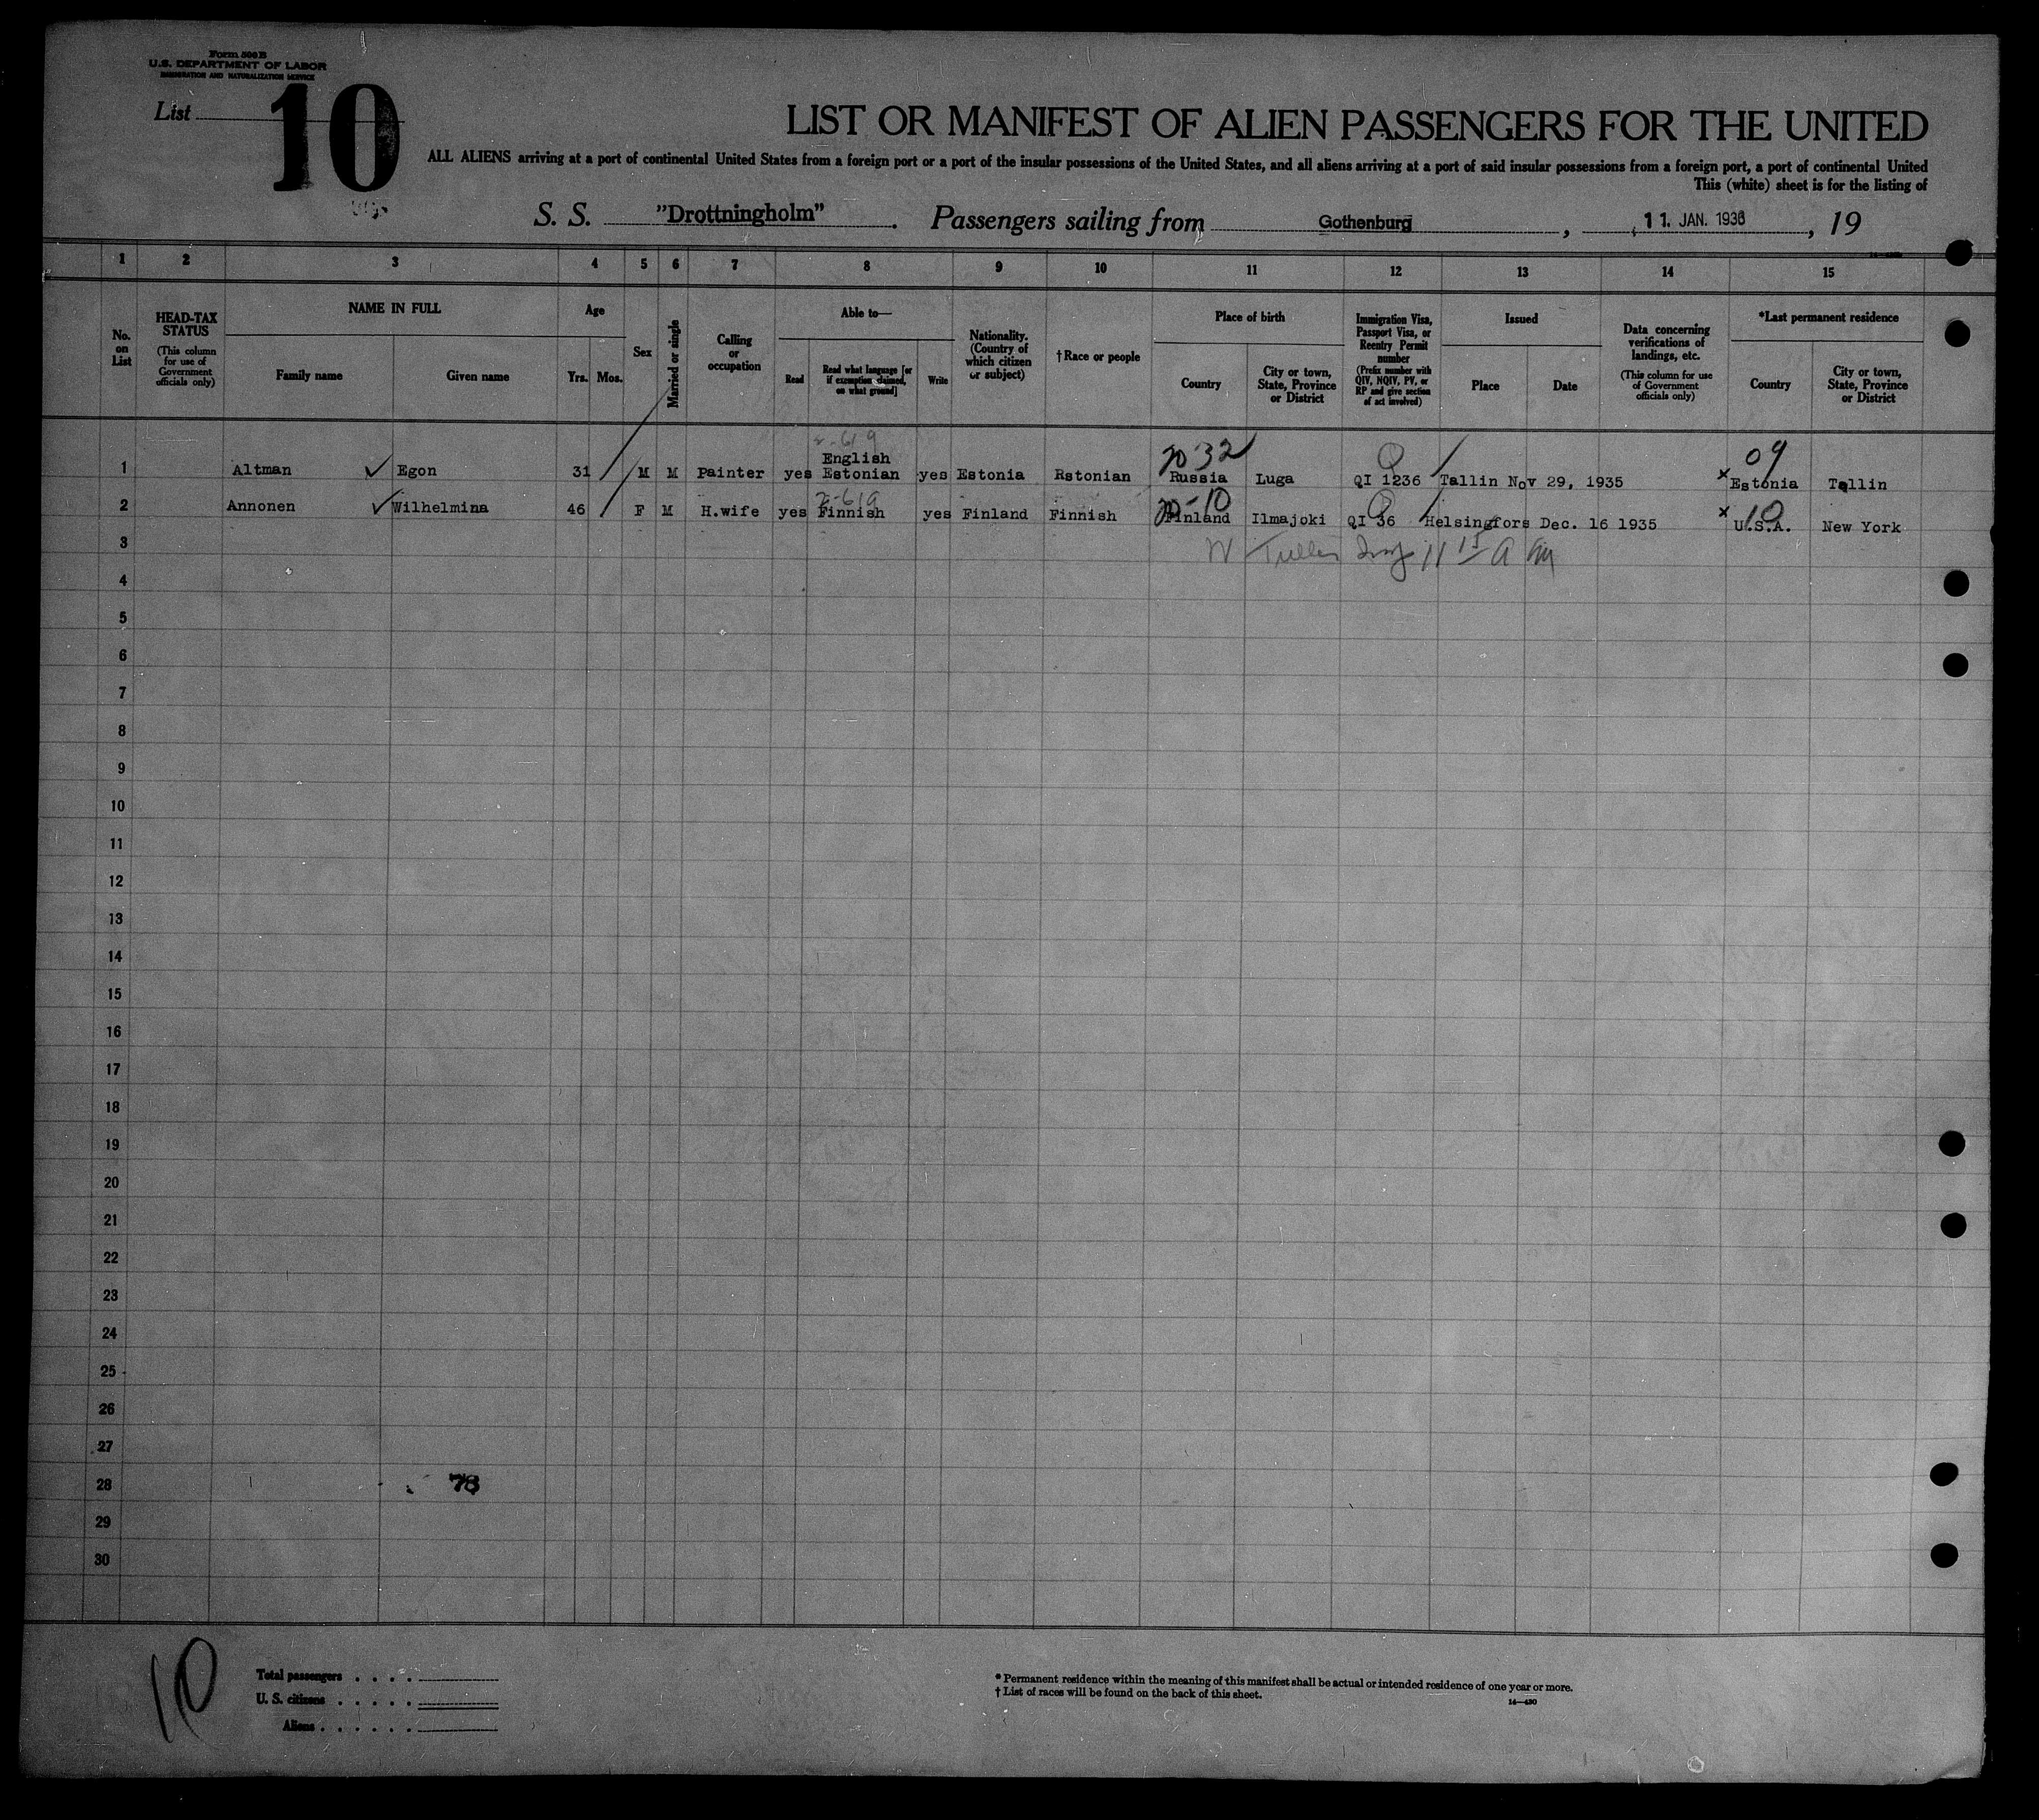 Form 500 B
U.S. DEPARTMENT OF LABOR
IMMIGRATION AND NATURALIZATION SERVICE
List 10
LIST OR MANIFEST OF ALIEN PASSENGERS FOR THE UNITED
ALL ALIENS arriving at a port of continental United States from a foreign port or a port of the insular possessions of the United States, and all aliens arriving at a port of said insular possessions from a foreign port, a port of continental United
This (white) sheet is for the listing of
S. S. "Drottningholm". Passengers sailing from Gothenburg, 11. JAN. 1936, 19
1 2 3 4 5 6 7 8 9 10 11 12 13 14 15
No. on List
HEAD-TAX STATUS
(This column for use of Government officials only)
NAME IN FULL
Family name Given name
Age
Yrs. Mos.
Sex
Married or single
Calling or occupation
Able to—
Read Read what language [or if exemption claimed, on what ground] Write
Nationality. (Country of which citizen or subject)
†Race or people
Place of birth
Country City or town, State, Province or District
Immigration Visa, Passport Visa, or Reentry Permit number
(Prefix number with QIV, NQIV, PV, or RP and give section of act involved)
Issued
Place Date
Data concerning verifications of landings, etc.
(This column for use of Government officials only)
*Last permanent residence
Country City or town, State, Province or District
2-619 32 Q 09
English
1 Altman ✓ Egon 31 M M Painter yes Estonian yes Estonia Rstonian Russia Luga QI 1236 Tallin Nov 29, 1935 x Estonia Tallin
2-619 10 Q 10
2 Annonen ✓ Wilhelmina 46 F M H.wife yes Finnish yes Finland Finnish Finland Ilmajoki QI 36 Helsingfors Dec. 16 1935 x U.S.A. New York
3
4
5
6
7
8
9
10
11
12
13
14
15
16
17
18
19
20
21
22
23
24
25
26
27
28 78
29
30
10
Total passengers . . . .
U. S. citizens . . . . .
Aliens . . . . . .
* Permanent residence within the meaning of this manifest shall be actual or intended residence of one year or more.
† List of races will be found on the back of this sheet.
14—430